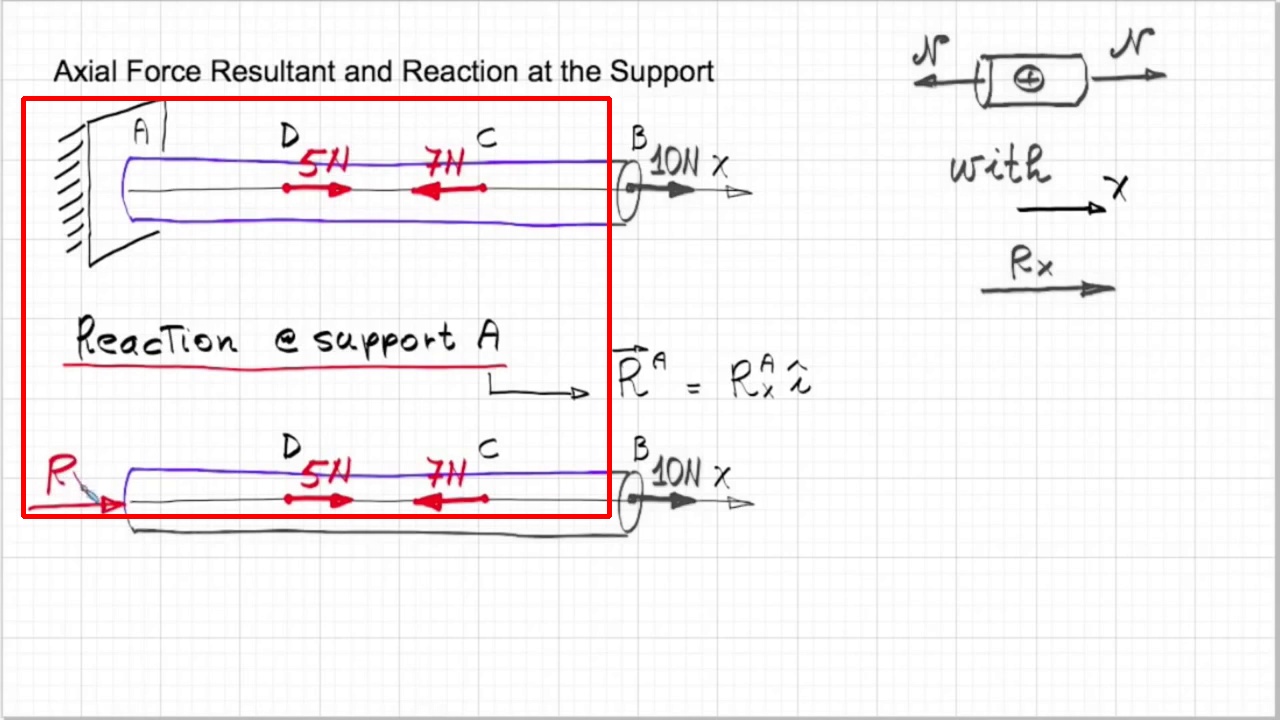 Axial Force Resultant and Reaction at the Support
N N
A D 5N 7N C B 10N x
with
x
Rx
Reaction @ support A
R^A = R_x^A î
R D 5N 7N C B 10N x